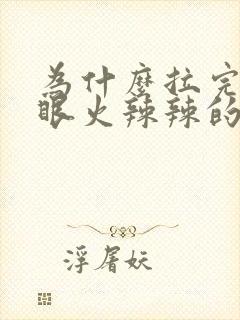 為什麼拉完
眼火辣辣的
浮屠妖